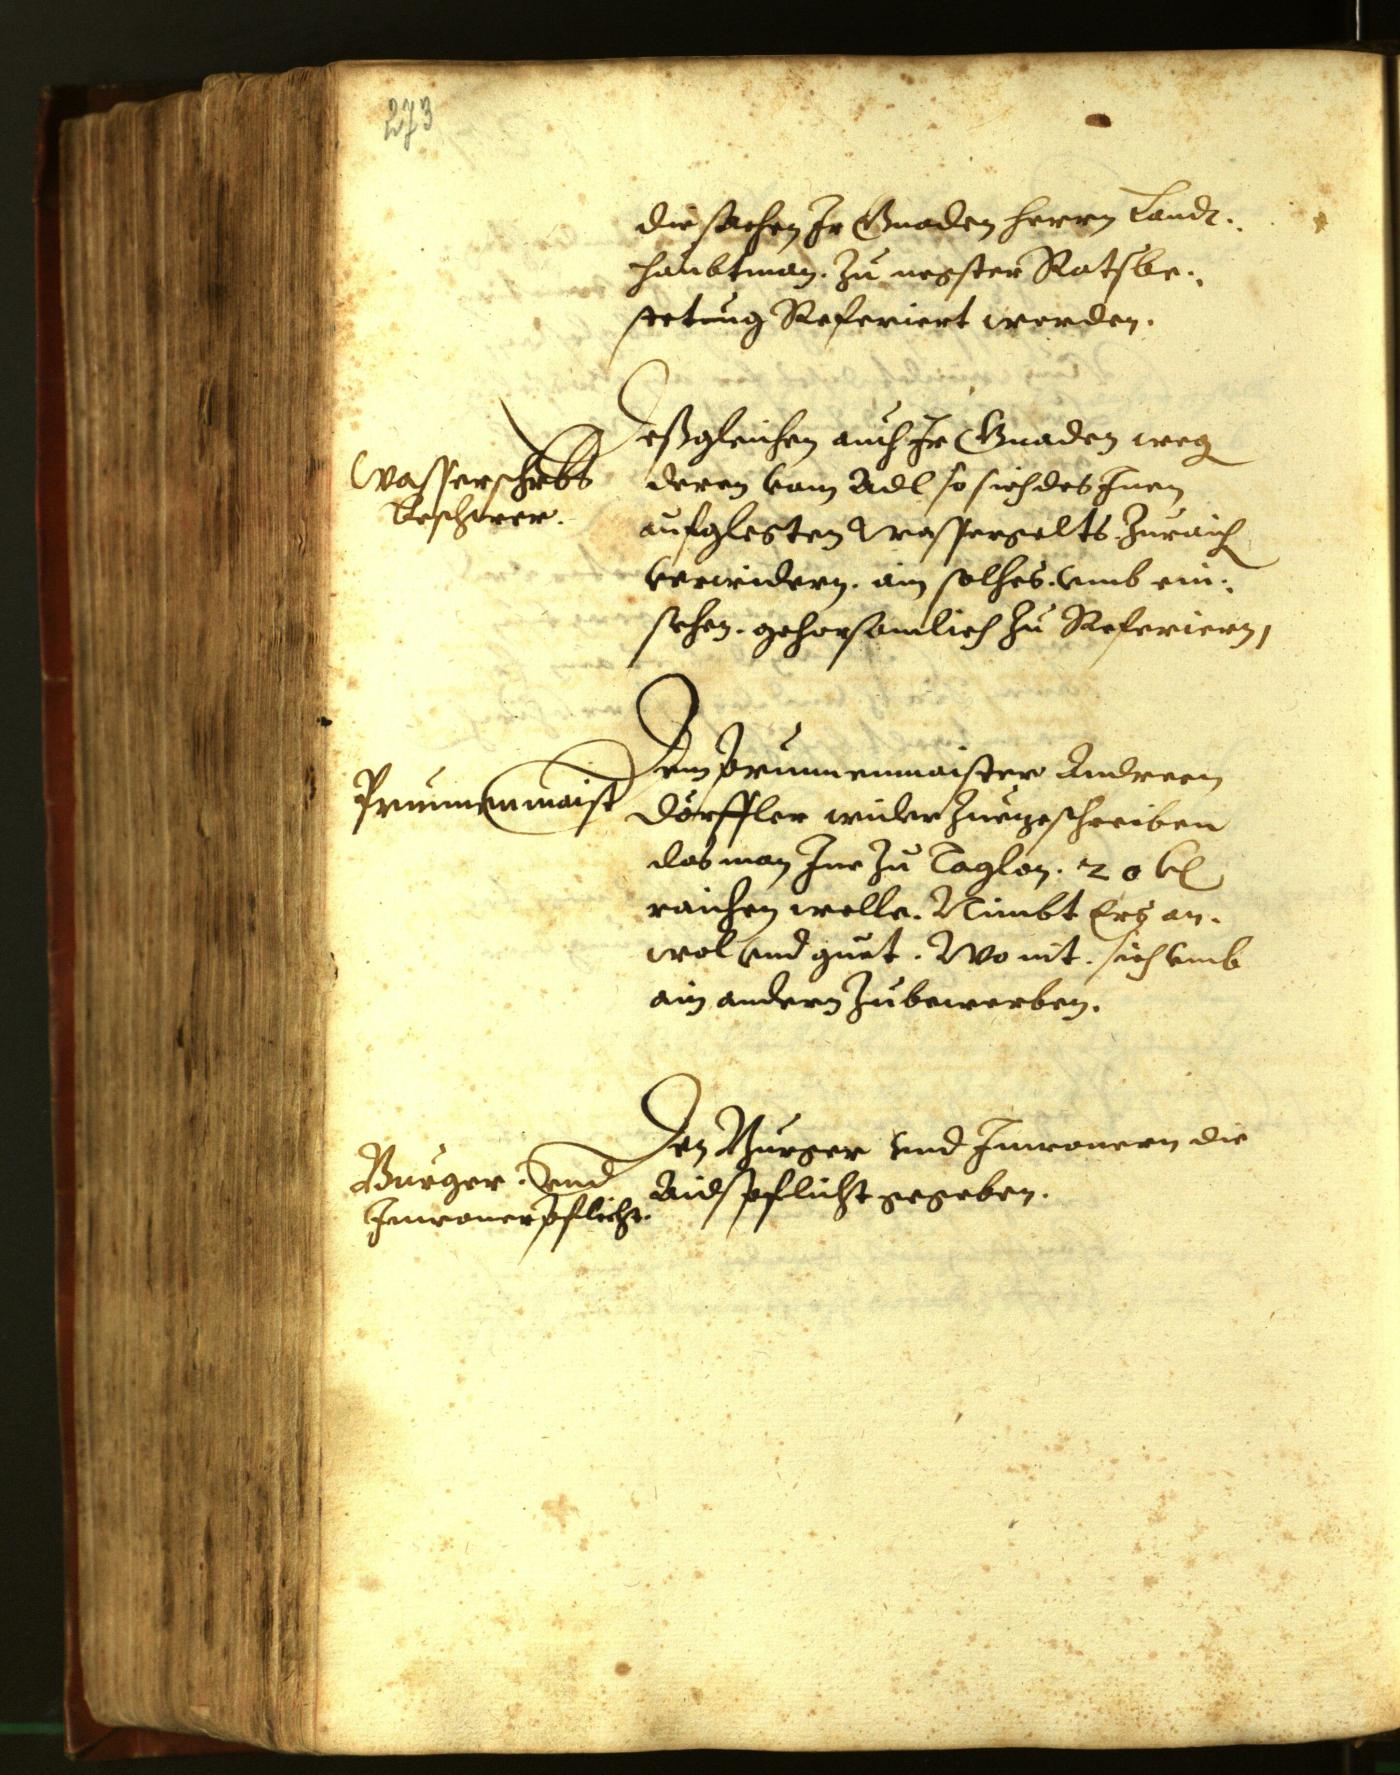 273
die sachen Ir Gnaden herrn Landt-
haubtman. zu negster Ratsbe-
setung Referiert werden.
Wasserschets
beschwer.
Deßgleichen auch Ir Gnaden weg
deren vom Adl so sich des Inen
aufglegten Wassergelts zuraich
verwidern. ain solhes. umb ein-
sehen. gehorsamlich zu Referiern,
Prunnenmaist
Dem Prunnenmaister Andreen
Dörffler wider zuezeschreiben
das man Ime zu Taglon. 20 kr
raichen welle. Nimbt Ers an.
wol und guet. Wo nit. sich umb
ain andern zubewerben.
Burger. und
Inwonerpflicht.
Den Burger und Inwonern die
Aidspflicht gegeben.